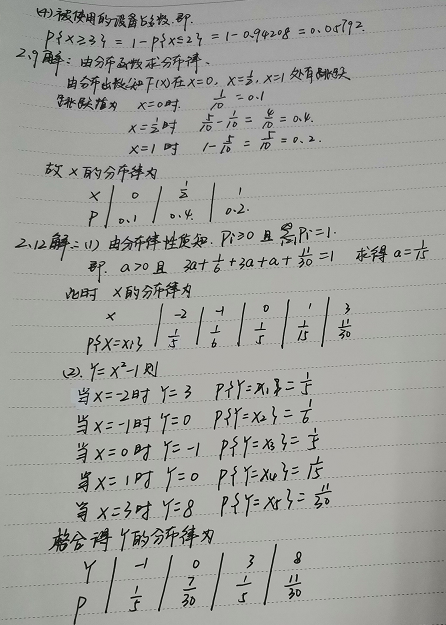 (4) 被使用的设备占多数. 即.
P{X≥3} = 1-P{X≤2} = 1-0.94208 = 0.05792.
2.9 解: 由分布函数求分布律.
由分布函数知 F(x)在 x=0, x=1/2, x=1 处有跳跃
跳跃值为 x=0时 1/10 = 0.1
x=1/2时 5/10 - 1/10 = 4/10 = 0.4.
x=1 时 1-5/10 = 5/10 = 0.2.
故 X 的分布律为
X | 0 | 1/2 | 1
P | 0.1 | 0.4. | 0.2.
2.12 解: (1) 由分布律性质知. Pi≥0 且 ΣPi=1.
即. a>0 且 3a+1/6+3a+a+11/30=1 求得 a=1/15
此时 X的分布律为
X | -2 | -1 | 0 | 1 | 3
P{X=xi} | 1/5 | 1/6 | 1/5 | 1/15 | 11/30
(2). Y=X²-1 则
当X=-2时 Y=3 P{Y=x1}=1/5
当X=-1时 Y=0 P{Y=x2}=1/6
当X=0时 Y=-1 P{Y=x3}=1/5
当X=1时 Y=0 P{Y=x4}=1/15
当X=3时 Y=8 P{Y=x5}=11/30
整合得 Y的分布律为
Y | -1 | 0 | 3 | 8
P | 1/5 | 7/30 | 1/5 | 11/30